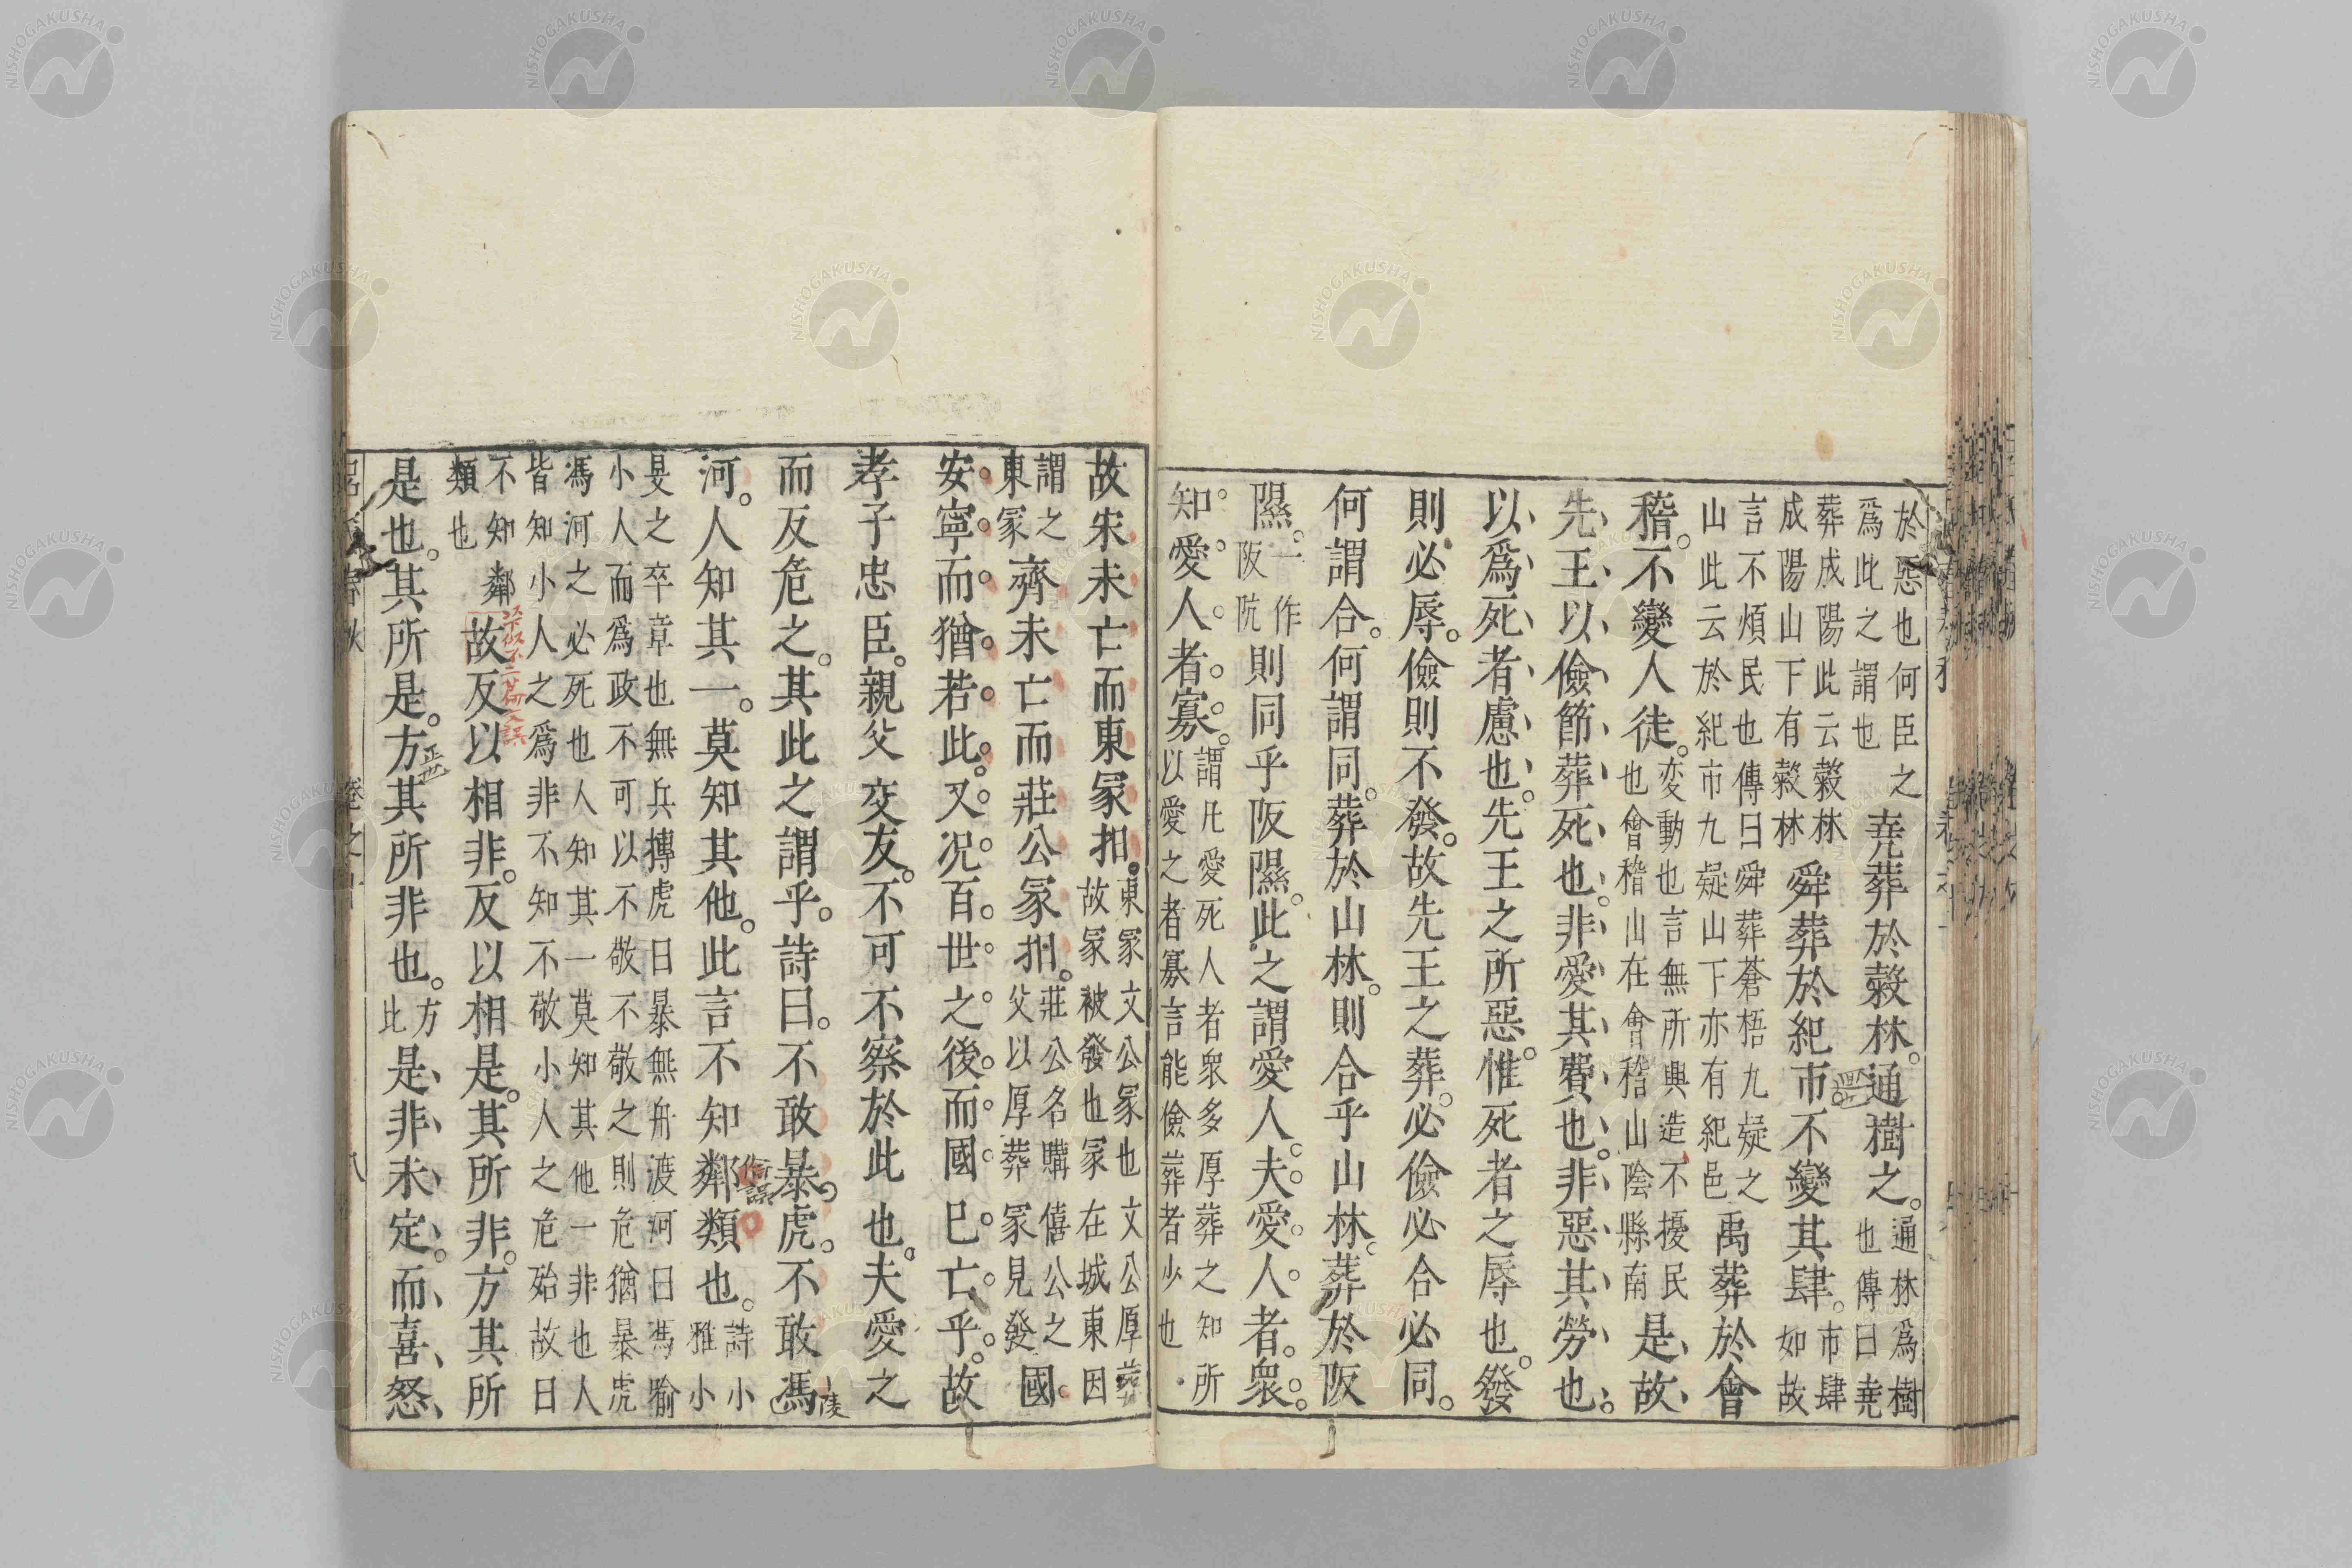 於惡也何臣之
爲此之謂也
堯葬於穀林。通樹之。
通林爲樹
也傳曰堯
葬成陽此云穀林
成陽山下有穀林
舜葬於紀市不變其肆。
市肆
如故
言不煩民也傳曰舜葬蒼梧九疑之
山此云於紀市九疑山下亦有紀邑
禹葬於會
稽。不變人徒。
変動也言無所興造不擾民
也會稽山在會稽山陰縣南
是故
先王以儉節葬死也。非愛其費也。非惡其勞也。
以爲死者慮也。先王之所惡。惟死者之辱也。發
則必辱。儉則不發。故先王之葬。必儉必合必同。
何謂合。何謂同。葬於山林。則合乎山林。葬於阪
隰。
一作
阪阬
則同乎阪隰。此之謂愛人。夫愛人者。衆。
知愛人者寡。
謂凡愛死人者衆多厚葬之知所
以愛之者寡言能儉葬者少也
故宋未亡而東冢抇。
東冢文公冢也文公厚葬
故冢被發也冢在城東因
謂之
東冢
齊未亡而莊公冢抇。
莊公名購僖公之
父以厚葬冢見發
國
安寧而猶若此。又况百世之後而國巳亡乎。故
孝子忠臣。親父交友。不可不察於此也。夫愛之
而反危之。其此之謂乎。詩曰。不敢暴虎。不敢馮
河。人知其一。莫知其他。此言不知鄰類也。
詩小
雅小
旻之卒章也無兵搏虎曰暴無舟渡河曰馮喻
小人而爲政不可以不敬不敬之則危猶暴虎
馮河之必死也人知其一莫知其他一非也人
皆知小人之爲非不知不敬小人之危殆故曰
不知鄰
類也
故反以相非。反以相是。其所非。方其所
是也。其所是。方其所非也。
方
此
是非未定。而喜怒